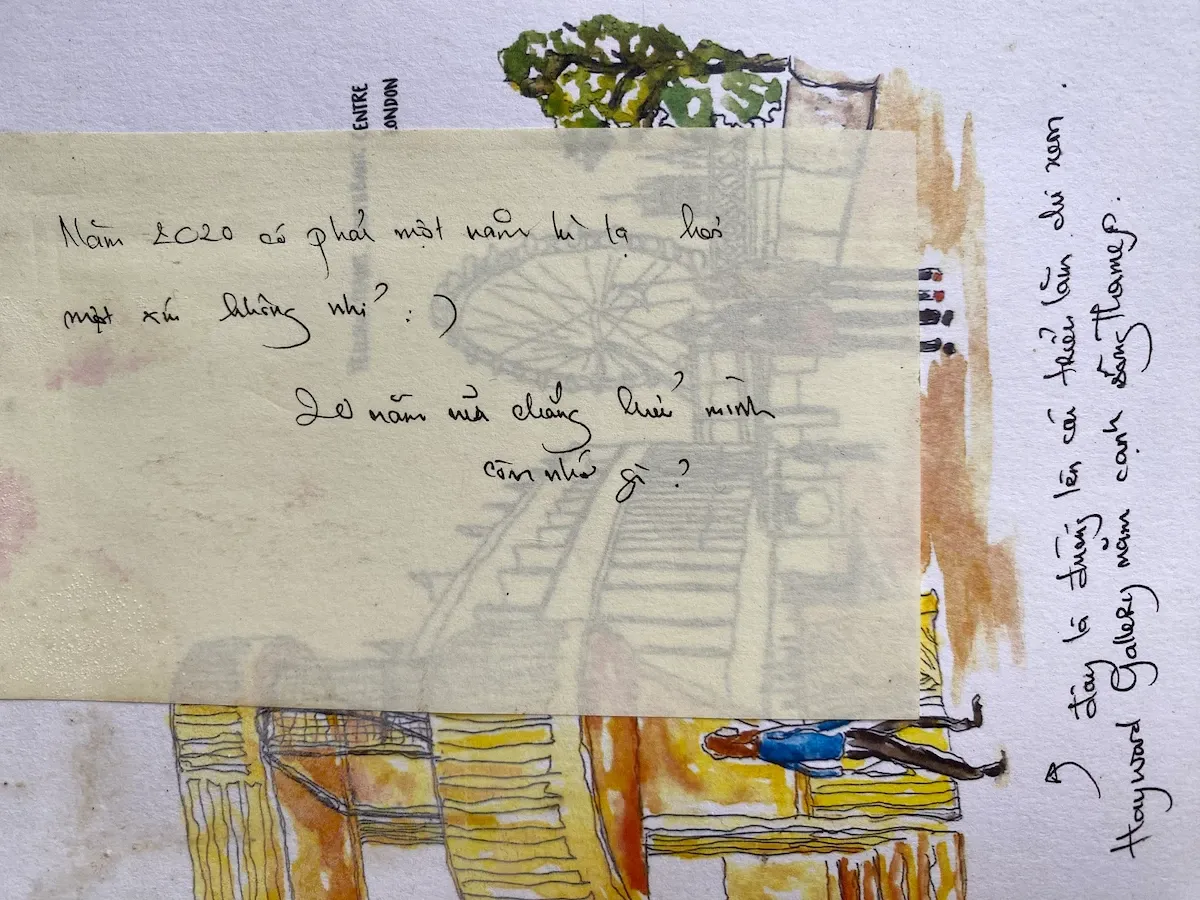 Năm 2020 có phải một năm kì lạ hơn
một xíu không nhỉ? :)
20 năm nữa chẳng hiểu mình
còn nhớ gì?
Đây là đường lên cái triển lãm dú xem.
Hayward Gallery nằm cạnh sông Thames.
ENTRE
LONDON